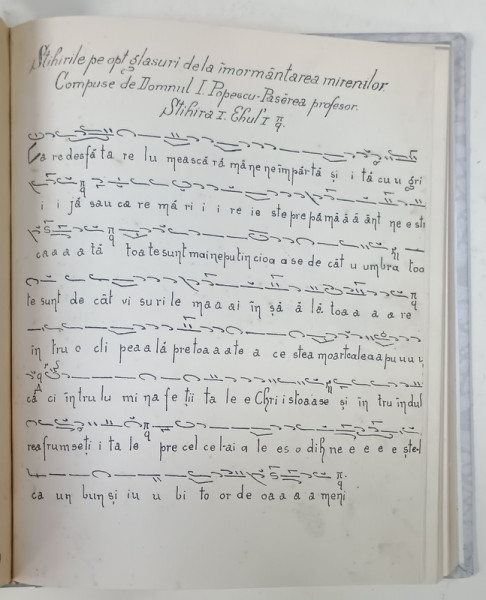 Stihirile pe opt glasuri de la înmormântarea mirenilor.
Compuse de Domnul I Popescu-Pasărea profesor.
Stihira I. Ehul I
Ca re desfă ta re lu mească ră mâne neîmpărtă și i tă cu u gri
i i jă sau ca re mă ri i i re ie ste pre pă mâ â â ânt ne e sti
caa a a tă toa te sunt mai ne pu tin cioa a se de cât u umbra toa
te sunt de cât vi su ri le ma a ai în șă ă lă toa a a a re
în tru o cli pea a lă pre toa a a te a ce stea moartea le a a pu u u
că ci în tru lu mi na fe ții ta le e Chri i stoa a se și în tru îndul
rea frum seti i ta le pre cel ce l-ai a le es o dih ne e e e e ște-l
ca un bun și iu u bi to or de oa a a a meni